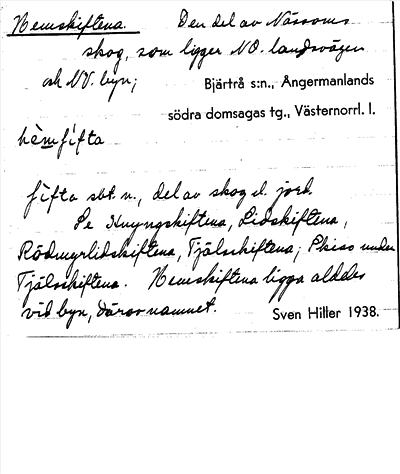 Hemskiftena. Den del av Nässoms
skog, som ligger NO. landsvägen
och NV. byn; Bjärtrå s:n., Ångermanlands
södra domsagas tg., Västernorrl. l.
hèmʃífta
ʃifta sbt. n., del av skog el. jord.
Se Lidskiftena,
Rödmyrlidskiftena, Tjälsskiftena; Skiss under
Tjälsskiftena. Hemskiftena ligga alldeles
vid byn, därav namnet. Sven Hiller 1938.